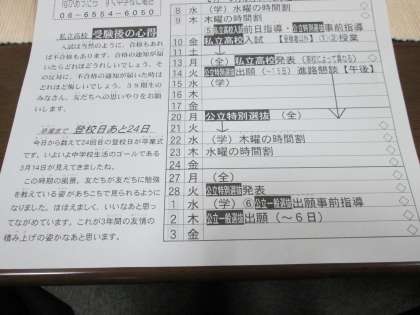 06-6554-0630
私立高校 受験後の心得
入試は当然のように、合格もあれ
ば不合格もあります。合格の通知が届
いたらどれほどうれしいでしょう。そ
の反対に、不合格の通知が届いた時は
どれほど悔しいでしょう。39期生の
みなさん、友だちへの思いやりをお願
いします。
卒業まで 登校日あと24日
今日から数えて24回目の登校日が卒業式
です。いよいよ中学校生活のゴールである
3月14日が見えてきましたね。
この時期の風景、友だちが友だちに勉強
を教えている姿があちこちで見られるように
なりました。ほほえましく、いいなあと思っ
てながめています。これが3年間の友情の
積み上げの姿かなあと思います。
8 水 (学) 水曜の時間割
9 木 木曜の時間割
⑤私立高校入試前日指導・公立特別選抜事前指導
10 金 私立高校入試 授業
11 土
13 月 (全) 私立高校発表
14 火 公立特別選抜出願(~15) 進路懇談【午後】
15 水 (学)
16 木
17 金
20 月 公立特別選抜 (全)
21 火
22 水 (学) 木曜の時間割
23 木 水曜の時間割
24 金
27 月 (全)
28 火 公立特別選抜発表
1 水 (学) ⑥公立一般選抜出願事前指導
2 木 公立一般選抜出願(~6日)
3 金